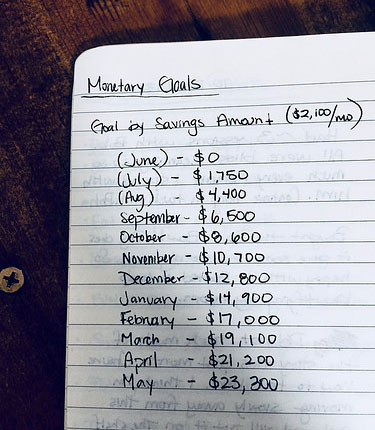 Monetary Goals
Goal by Savings Amount ($2,100/mo)
(June) - $0
(July) - $1,750
(Aug) - $4,400
September - $6,500
October - $8,600
November - $10,700
December - $12,800
January - $14,900
February - $17,000
March - $19,100
April - $21,200
May - $23,300